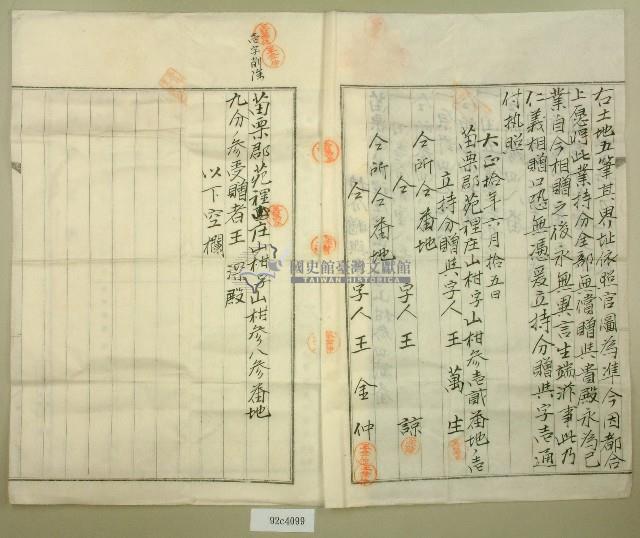 右土地五筆其界址依照官圖為準今因都合
上愿將此業持分全部無償贈與貴殿永為己
業自今相贈之後永無異言生端滋事此乃
仁義相贈口恐無憑爰立持分贈與字壱通
付執照
大正拾年六月拾五日
苗栗郡苑裡庄山柑字山柑參壱貳番地ノ壱
立持分贈與字人王萬生
仝所仝番地
仝 字人王 諒
仝所仝番地
仝 字人王金仲
壱字削除
苗栗郡苑裡庄山柑字山柑參八參番地
九分ノ參受贈者王 深殿
以下空欄
國史館臺灣文獻館
TAIWAN HISTORICA
92c4099